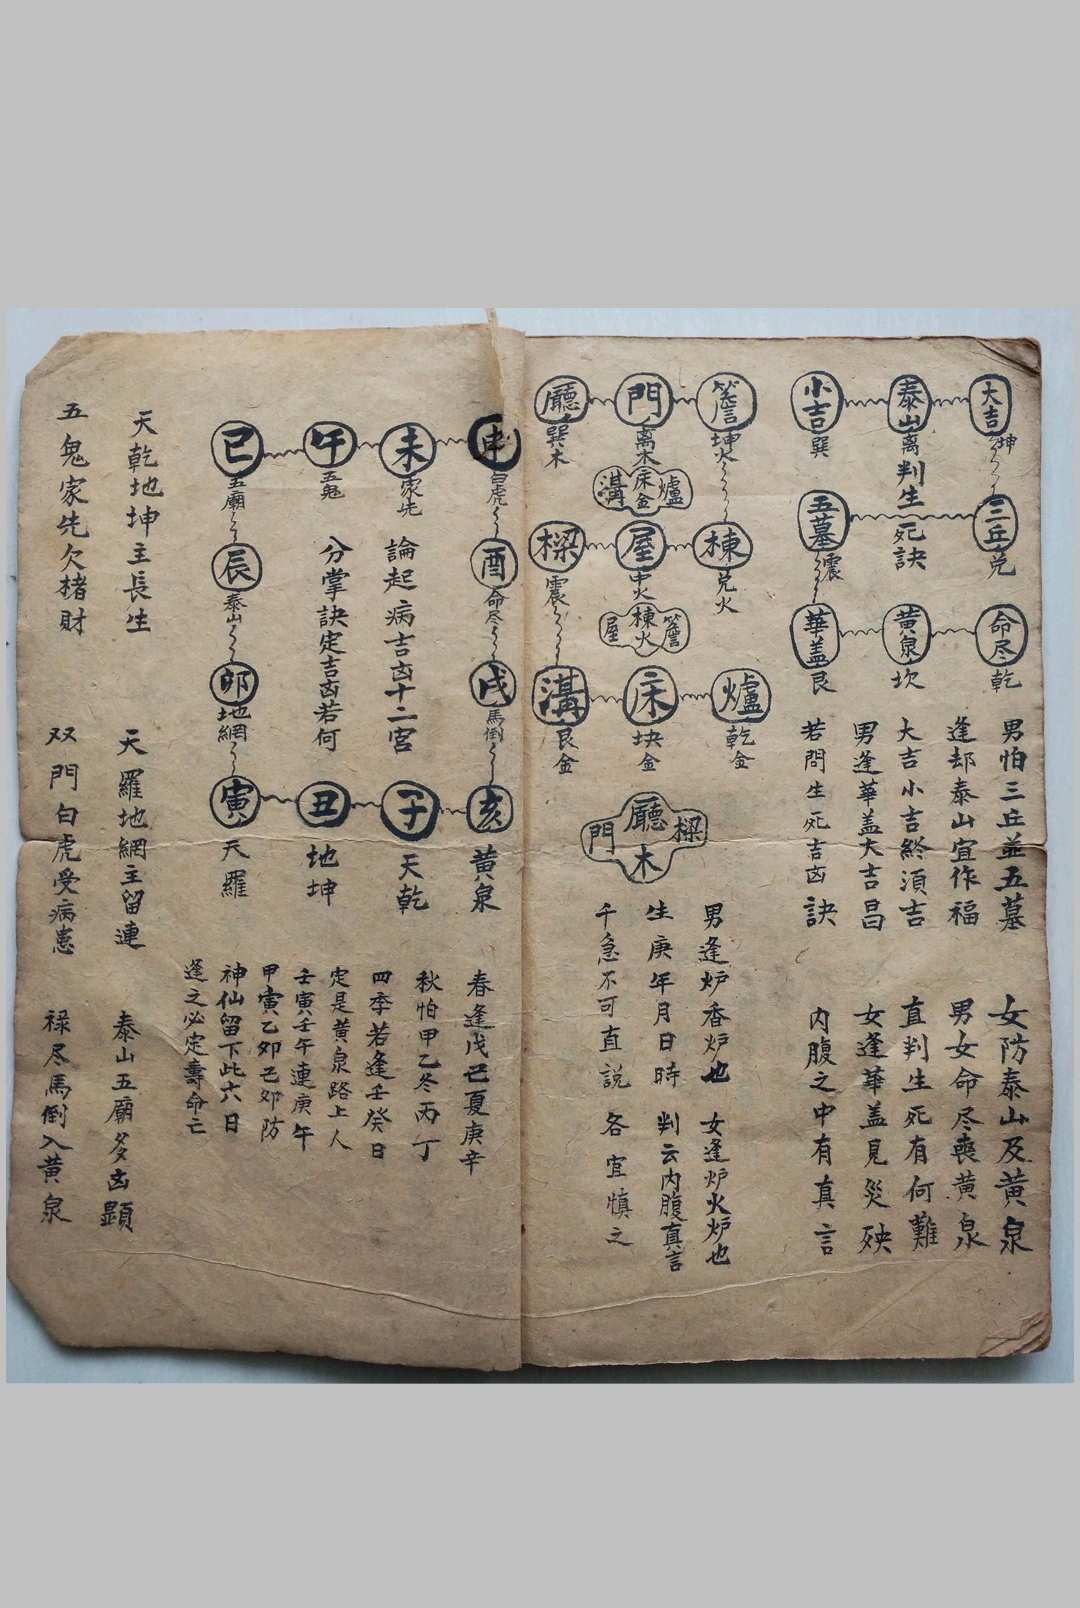 大吉 坤
泰山 離
小吉 巽
三丘 兌
判生死訣
五墓 震
命尽 乾
黄泉 坎
華盖 艮
男怕三丘並五墓 女防泰山及黄泉
逢却泰山宜作福 男女命尽喪黄泉
大吉小吉終須吉 直判生死有何難
男逢華盖大吉昌 女逢華盖見災殃
若問生死吉凶訣 内腹之中有真言
簷 坤火
門 离木
廳 巽木
爐 床金 溝
棟 兌火
屋 中火
樑 震
簷 棟火 屋
爐 乾金
床 坎金
溝 艮金
樑 廳木 門
男逢炉香炉也 女逢炉火炉也
生庚年月日時 判云内腹真言
千急不可直説 各宜慎之
申 白虎
未 家先
午 五鬼
巳 五廟
酉 命尽
辰 泰山
戌 馬倒
卯 地網
亥 黄泉
子 天乾
丑 地坤
寅 天羅
論起病吉凶十二宮
分掌訣定吉凶若何
春逢戊己夏庚辛
秋怕甲乙冬丙丁
四季若逢壬癸日
定是黄泉路上人
壬寅壬午連庚午
甲寅乙卯己卯防
神仙留下此六日
逢之必定壽命亡
天乾地坤主長生 天羅地網主留連 泰山五廟多凶顕
五鬼家先欠楮財 双門白虎受病患 禄尽馬倒入黄泉